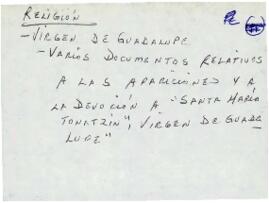 RELIGIÓN
-VIRGEN DE GUADALUPE
-VARIOS DOCUMENTOS RELATIVOS
A LAS APARICIONES Y A
LA DEVOCIÓN A "SANTA MARÍA
TONATZIN", VIRGEN DE GUADA
LUPE"